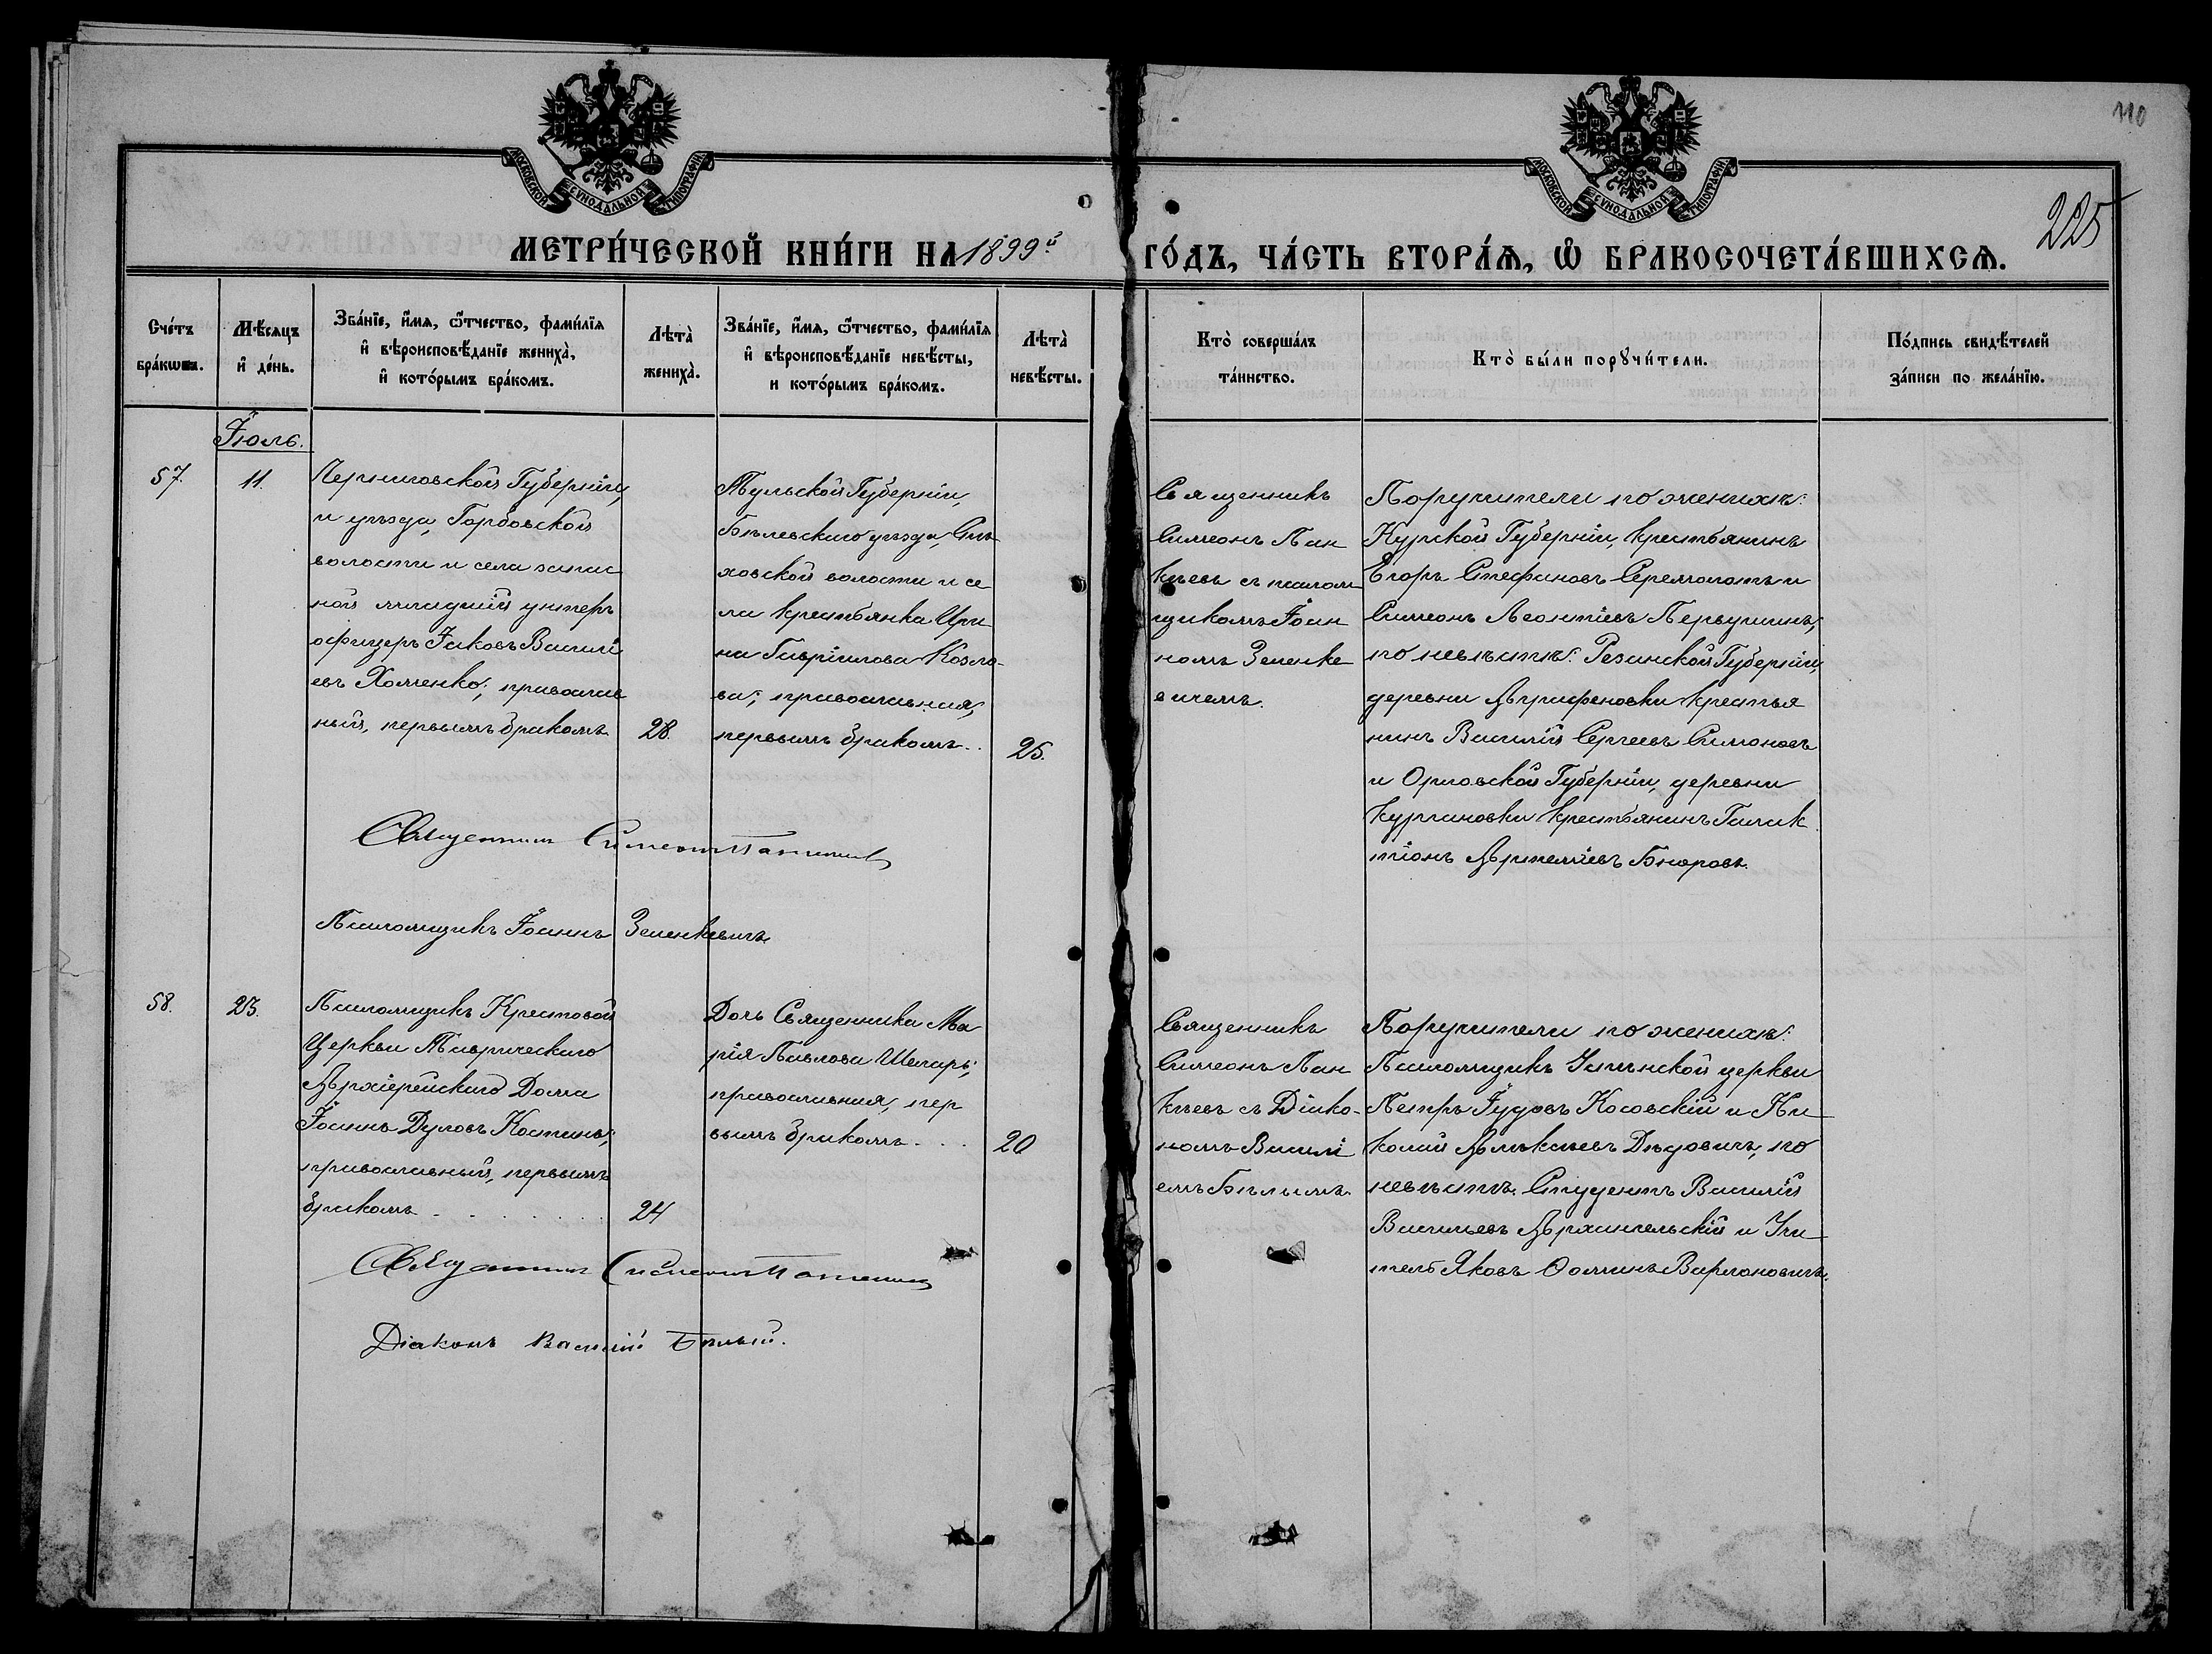 110
225
МОСКОВСКОЙ СѴНОДАЛЬНОЙ ТИПОГРАФІИ
МОСКОВСКОЙ СѴНОДАЛЬНОЙ ТИПОГРАФІИ
МЕТРИ́ЧЕСКОЙ КНИ́ГИ НА 1899й ГО́ДЪ, ЧА́СТЬ ВТОРА́Ѧ, Ѡ҆ БРАКОСОЧЕТА́ВШИХСѦ.
Сче́тъ
бра́кωвъ.
Мѣ́сѧцъ
и҆ де́нь.
Зва́нїе, и҆́мѧ, ѻ҆́тчество, фами́лїѧ
и҆ вѣроисповѣ́данїе жениха̀,
и҆ кото́рымъ бра́комъ.
Лѣта̀
жениха̀.
Зва́нїе, и҆́мѧ, ѻ҆́тчество, фами́лїѧ
и҆ вѣроисповѣ́данїе невѣ́сты,
и кото́рымъ бра́комъ.
Лѣта̀
невѣ́сты.
Кто̀ соверша́лъ
та́инство.
Кто̀ бы́ли порꙋчи́тели.
По́дпись свидѣ́телей
за́писи по жела́нїю.
Іюль.
57.
11.
Черниговской Губерніи,
и уѣзда, Горбовской
волости и села запас
ной младшій унтеръ
офицеръ Іаковъ Василі
евъ Хоменко; православ
ный, первымъ бракомъ
28.
Тульской Губерніи,
Бѣлевскаго уѣзда,
ховской волости и се
ла крестьянка Ири
на Гавріилова Козло-
ва; православная,
первымъ бракомъ . .
25.
Священникъ
Симеонъ Пан
кѣевъ съ псалом
щикомъ Іоан
номъ Зеленке
вичемъ.
Поручители по женихѣ:
Курской Губерніи, крестьянинъ
Егоръ Стефановъ и
Симеонъ Леонтіевъ Первушинъ;
по невѣстѣ: Резанской Губерніи,
деревни Аграфеновки крестья
нинъ Василій Сергеевъ Симоновъ
и Орловской Губерніи, деревни
Кургановки крестьянинъ Галак
тіонъ Артеміевъ
Священникъ Симеонъ Панкѣевъ
Псаломщикъ Іоаннъ Зеленкевичъ
58.
23.
Псаломщикъ Крестовой
Церкви Таврическаго
Архіерейскаго Дома
Іоаннъ Дуловъ Костинъ;
православный, первымъ
бракомъ . . . . . .
24
Дочь Священника Ма
рія Павлова Шепарь;
православная, пер
вымъ бракомъ . . .
20
Священникъ
Симеонъ Пан
кѣевъ съ Діако-
номъ Василі
емъ Бѣлымъ.
Поручители по женихѣ:
Псаломщикъ церкви
Петръ Іудовъ Косовскій и Ни
колай Алексѣевъ Дѣдовичъ, по
невѣстѣ: Студентъ Василій
Васильевъ Архангельскій и Учи
тель Яковъ Ѳоминъ Варлановичъ.
Священникъ Симеонъ Панкѣевъ
Діаконъ Василій Бѣлый.